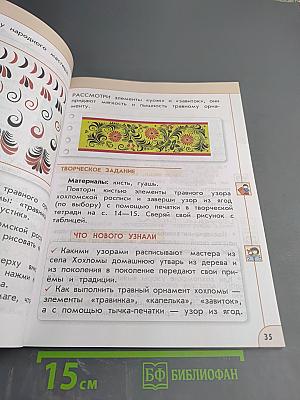 у народного масте
травного ор
ы: «травин
устик».
хохломской
рисовать к
ерху вни
нажми н
таблице
РАССМОТРИ элементы «усик» и «завиток», они
придают мягкость и пышность травному орна-
менту.
ТВОРЧЕСКОЕ ЗАДАНИЕ
Материалы: кисть, гуашь.
Повтори кистью элементы травного узора
хохломской росписи и заверши узор из ягод
(по выбору) с помощью печатки в творческой
тетради на с. 14—15. Сверяй свой рисунок с
таблицей.
ЧТО НОВОГО УЗНАЛИ
✓ Какими узорами расписывают мастера из
села Хохломы домашнюю утварь из дерева и
из поколения в поколение передают свои при-
ёмы и традиции.
✓ Как выполнить травный орнамент хохломы —
элементы «травинка», «капелька», «завиток»,
а с помощью тычка-печатки — узор из ягод.
35
15 см
БФ БИБЛИОФАН